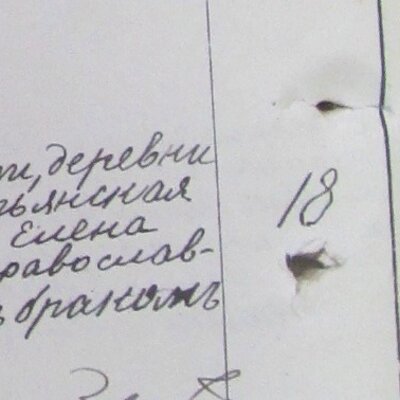 ти, деревни
тьянская 18
Елена
равослав-
ъ бракомъ